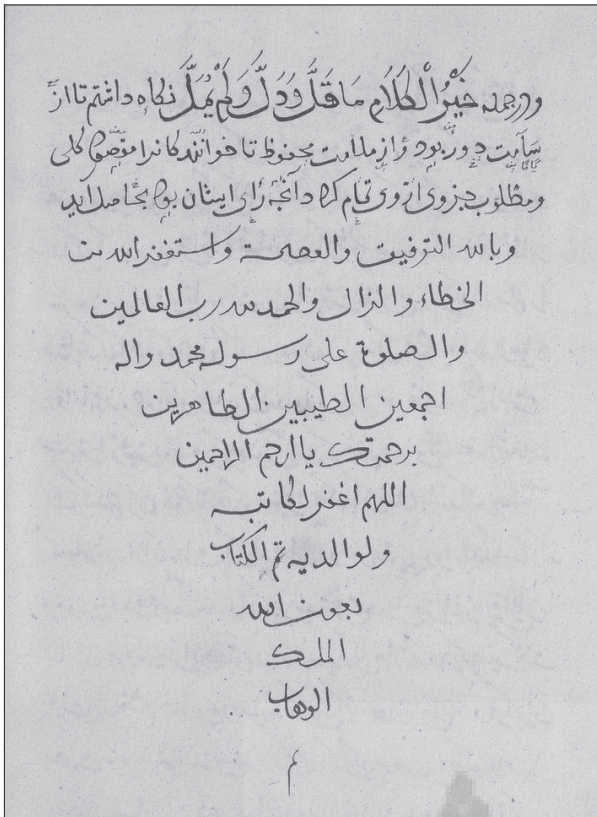 ودرجمله خَيْرُ الْكَلَامِ مَا قَلَّ وَدَلَّ وَلَمْ يُمَلَّ نكاه داشتم تا از
سآمت دور بود و از ملالت محفوظ تا خوانندكانرا مقصود كلى
ومطلوب جزوى ازوى تمام كردد آنجه راى ايشان بود بحاصل ايد
وبالله التوفيق والعصمة واستغفر الله من
الخطاء والزال والحمد لله رب العالمين
والصلوة على رسوله محمد واله
اجمعين الطيبين الطاهرين
برحمتك يا ارحم الراحمين
اللهم اغفر لكاتبه
ولوالديه تم الكتاب
بعون الله
الملك
الوهاب
م